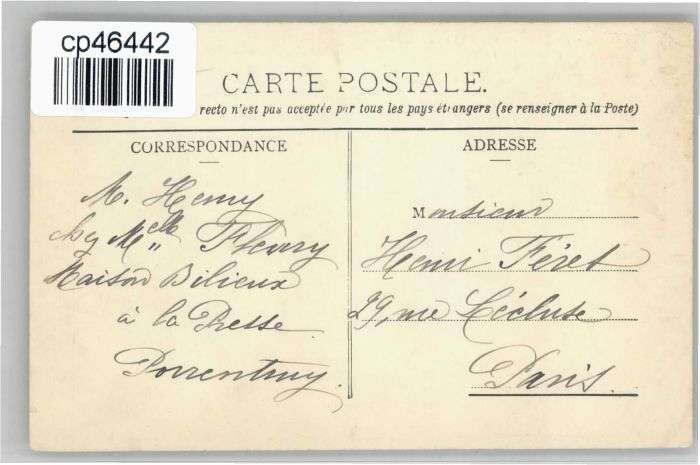 cp46442
CARTE POSTALE.
recto n'est pas acceptée par tous les pays étrangers (se renseigner à la Poste)
CORRESPONDANCE
M. Henry
chez Melle Fleury
Maison Bilieux
à la Presse
Porrentruy.
ADRESSE
Monsieur
Henri Féret
29, rue Lécluse
Paris.